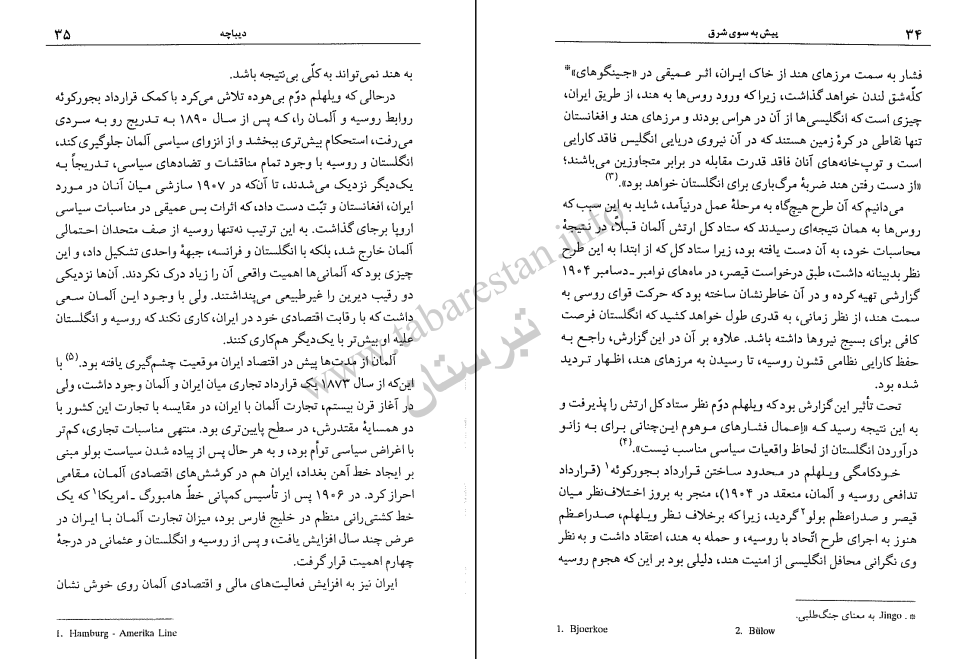 ۳۴
پیش به سوی شرق
فشار به سمت مرزهای هند از خاک ایران، اثر عمیقی در «جینگوهای»*
کلّه‌شق لندن خواهد گذاشت، زیرا که ورود روس‌ها به هند، از طریق ایران،
چیزی است که انگلیسی‌ها از آن در هراس بودند و مرزهای هند و افغانستان
تنها نقاطی در کرهٔ زمین هستند که در آن نیروی دریایی انگلیس فاقد کارایی
است و توپ‌خانه‌های آنان فاقد قدرت مقابله در برابر متجاوزین می‌باشند؛
«از دست رفتن هند ضربهٔ مرگ‌باری برای انگلستان خواهد بود».(۳)
می‌دانیم که آن طرح هیچ‌گاه به مرحلهٔ عمل درنیآمد، شاید به این سبب که
روس‌ها به همان نتیجه‌ای رسیدند که ستاد کل ارتش آلمان قبلاً، در نتیجهٔ
محاسبات خود، به آن دست یافته بود، زیرا ستاد کل که از ابتدا به این طرح
نظر بدبینانه داشت، طبق درخواست قیصر، در ماه‌های نوامبر ـ دسامبر ۱۹۰۴
گزارشی تهیه کرده و در آن خاطرنشان ساخته بود که حرکت قوای روسی به
سمت هند، از نظر زمانی، به قدری طول خواهد کشید که انگلستان فرصت
کافی برای بسیج نیروها داشته باشد. علاوه بر آن در این گزارش، راجع به
حفظ کارایی نظامی قشون روسیه، تا رسیدن به مرزهای هند، اظهار تردید
شده بود.
تحت تأثیر این گزارش بود که ویلهلم دوّم نظر ستاد کل ارتش را پذیرفت و
به این نتیجه رسید کـه «اِعمال فشارهای موهوم این‌چنانی برای به زانو
درآوردن انگلستان از لحاظ واقعیات سیاسی مناسب نیست».(۴)
خودکامگی ویلهلم در محدود ساختن قرارداد بجورکوئه۱ (قرارداد
تدافعی روسیه و آلمان، منعقد در ۱۹۰۴)، منجر به بروز اختلاف‌نظر میان
قیصر و صدراعظم بولو۲ گردید، زیرا که برخلاف نظر ویلهلم، صدراعظم
هنوز به اجرای طرح اتّحاد با روسیه، و حمله به هند، اعتقاد داشت و به نظر
وی نگرانی محافل انگلیسی از امنیت هند، دلیلی بود بر این که هجوم روسیه
* . Jingo به معنای جنگ‌طلبی.
1. Bjoerkoe 2. Bülow
دیباچه
۳۵
به هند نمی‌تواند به کلّی بی‌نتیجه باشد.
درحالی که ویلهلم دوّم بی‌هوده تلاش می‌کرد با کمک قرارداد بجورکوئه
روابط روسیه و آلمـان را، کـه پس از سال ۱۸۹۰ به تدریج رو به سردی
می‌رفت، استحکام بیش‌تری ببخشد و از انزوای سیاسی آلمان جلوگیری کند،
انگلستان و روسیه با وجود تمام مناقشات و تضادهای سیاسی، تدریجاً به
یک‌دیگر نزدیک می‌شدند، تا آن‌که در ۱۹۰۷ سازشی میان آنان در مورد
ایران، افغانستان و تبّت دست داد، که اثرات بس عمیقی در مناسبات سیاسی
اروپا برجای گذاشت. به این ترتیب نه‌تنها روسیه از صف متحدان احتمالی
آلمان خارج شد، بلکه با انگلستان و فرانسه، جبههٔ واحدی تشکیل داد، و این
چیزی بود که آلمانی‌ها اهمیت واقعی آن را زیاد درک نکردند. آن‌ها نزدیکی
دو رقیب دیرین را غیرطبیعی می‌پنداشتند. ولی با وجود این آلمان سعی
داشت که با رقابت اقتصادی خود در ایران، کاری نکند که روسیه و انگلستان
علیه او بیش‌تر با یک‌دیگر هم‌کاری کنند.
آلمان از مدت‌ها پیش در اقتصاد ایران موقعیت چشم‌گیری یافته بود.(۵) با
این‌که از سال ۱۸۷۳ یک قرارداد تجاری میان ایران و آلمان وجود داشت، ولی
در آغاز قرن بیستم، تجارت آلمان با ایران، در مقایسه با تجارت این کشور با
دو همسایهٔ مقتدرش، در سطح پایین‌تری بود. منتهی مناسبات تجاری، کم‌تر
با اغراض سیاسی توأم بود، و به هر حال پس از پیاده شدن سیاست بولو مبنی
بر ایجاد خط آهن بغداد، ایران هم در کوشش‌های اقتصادی آلمان، مقامی
احراز کرد. در ۱۹۰۶ پس از تأسیس کمپانی خطّ هامبورگ ـ امریکا۱ که یک
خط کشتی‌رانی منظم در خلیج فارس بود، میزان تجارت آلمان با ایران در
عرض چند سال افزایش یافت، و پس از روسیه و انگلستان و عثمانی در درجهٔ
چهارم اهمیت قرار گرفت.
ایران نیز به افزایش فعالیت‌های مالی و اقتصادی آلمان روی خوش نشان
1. Hamburg - Amerika Line
www.tabarestan.info
تبرستان